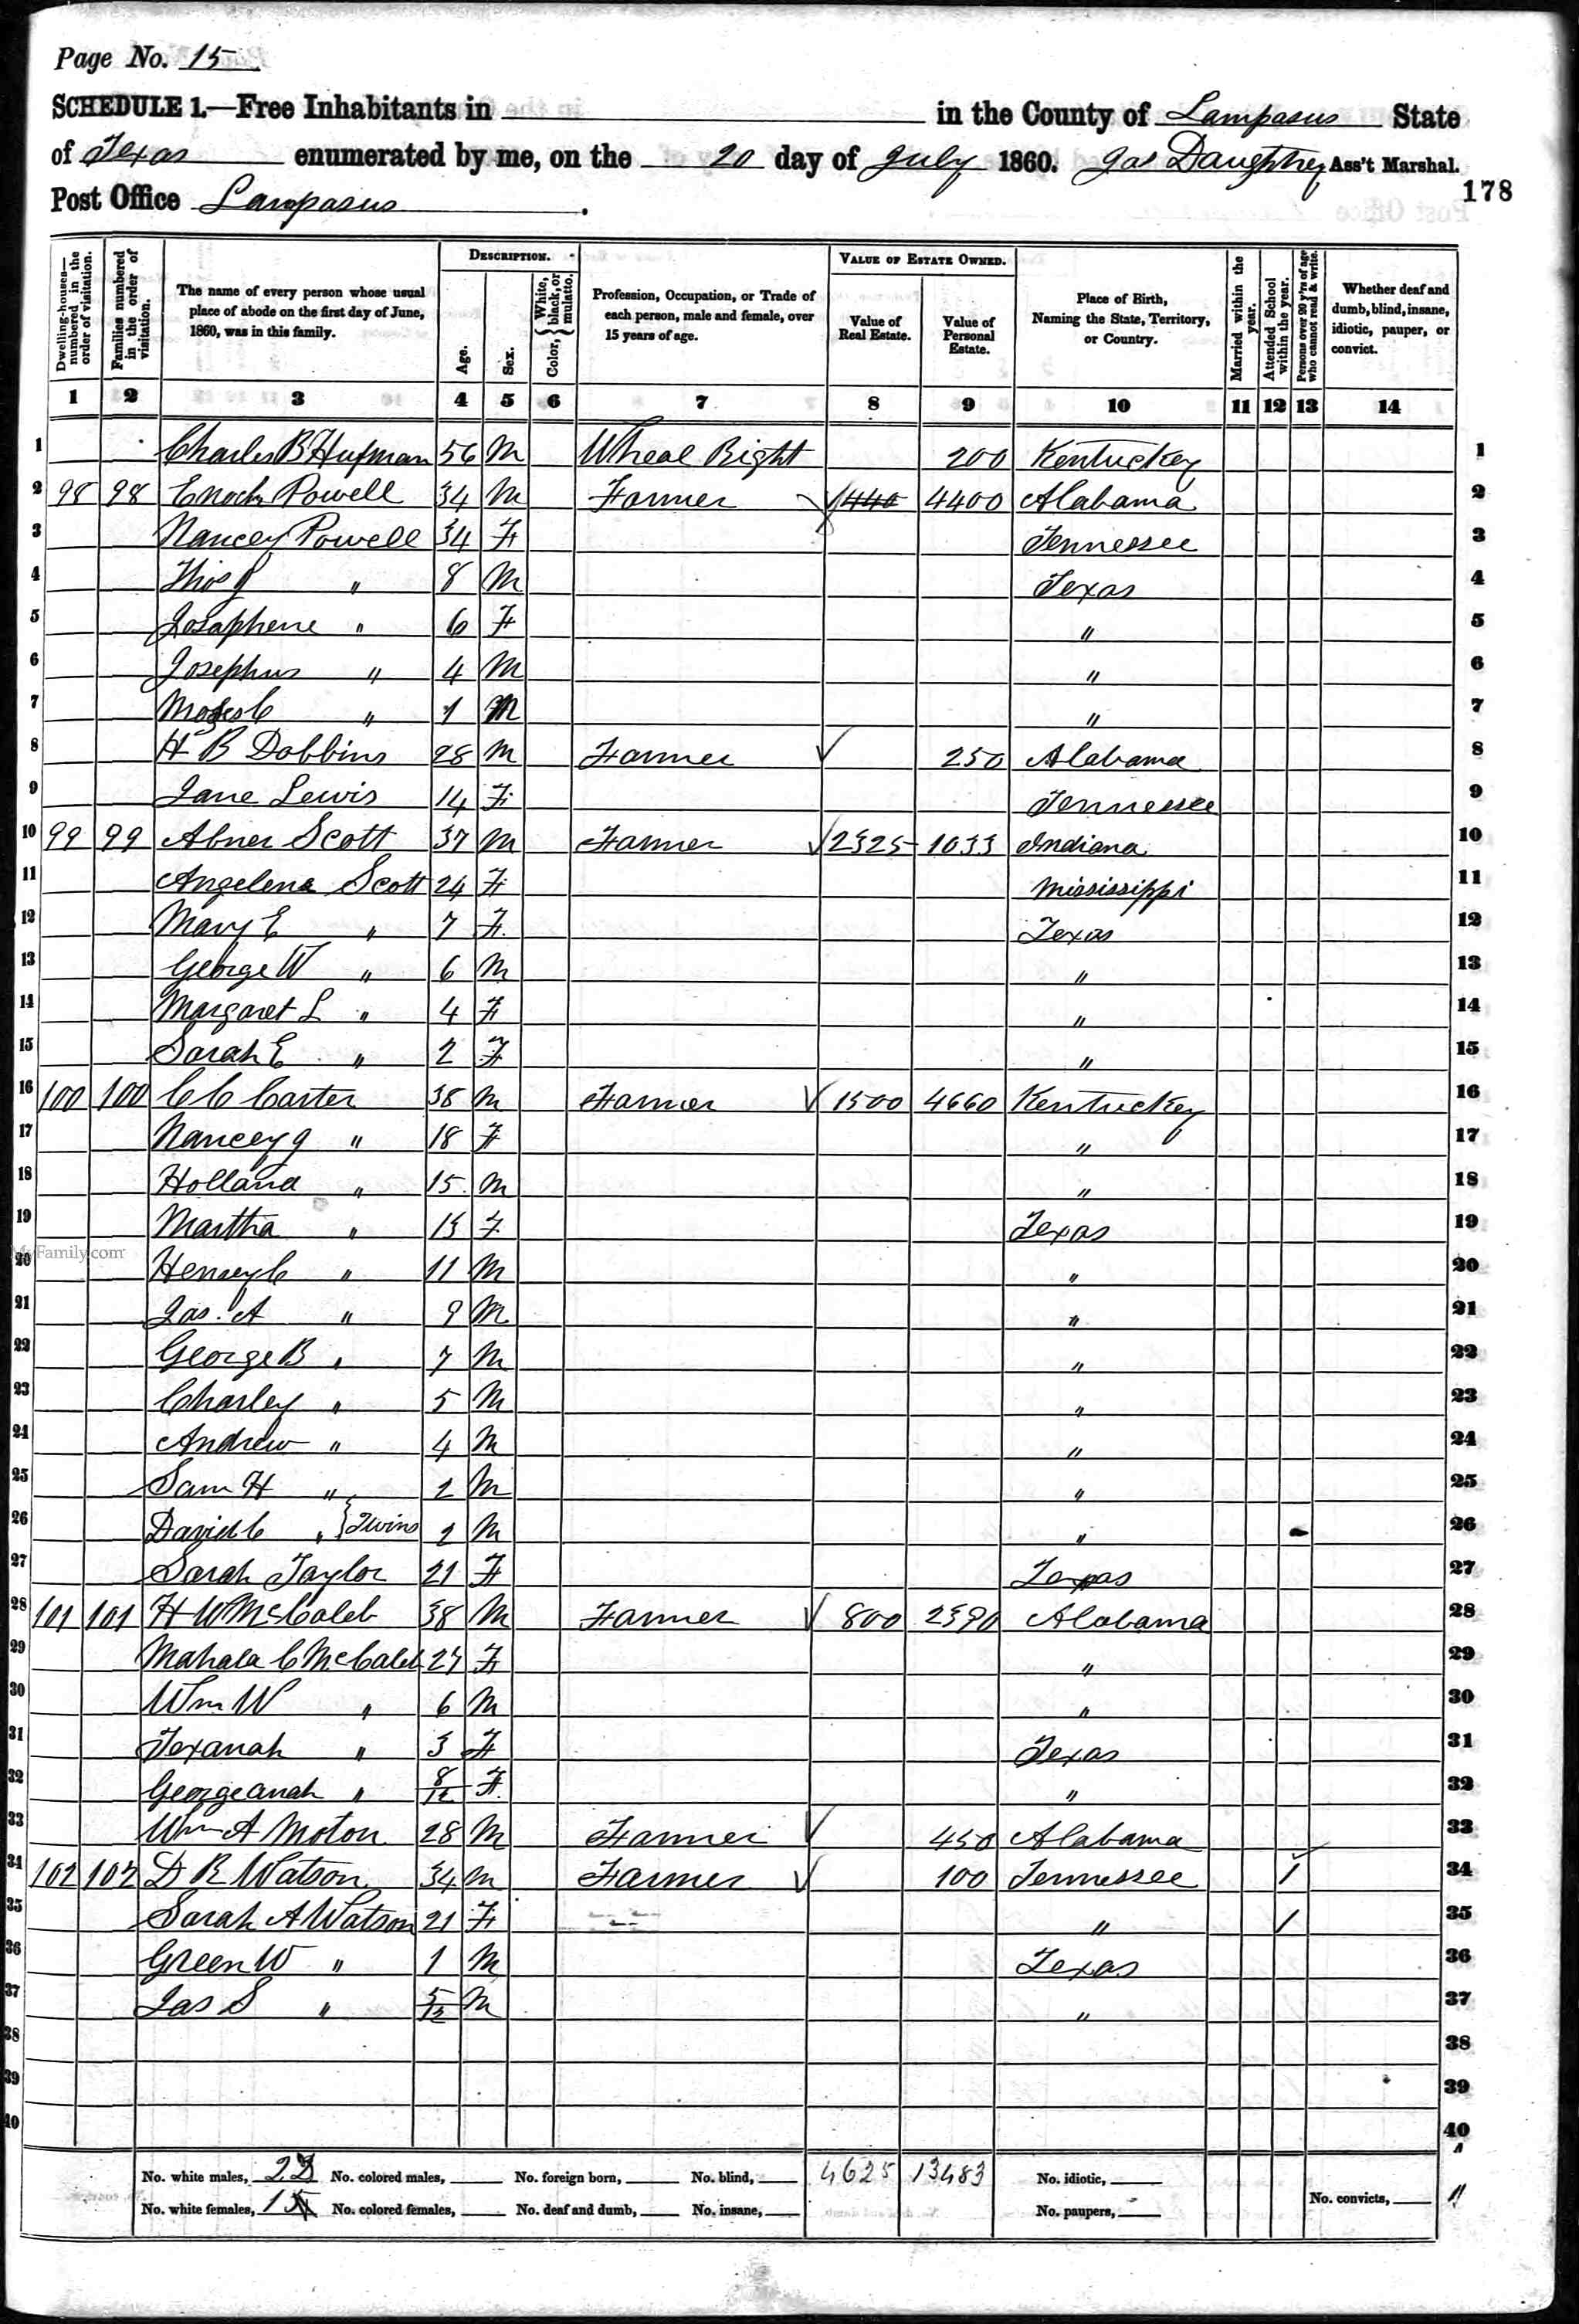 Page No. 15
SCHEDULE 1.—Free Inhabitants in in the County of Lampasus State
of Texas enumerated by me, on the 20 day of July 1860. Jas Daughtrey Ass't Marshal.
178
Post Office Lampasus .
Dwelling-houses—numbered in the order of visitation. Families numbered in the order of visitation. The name of every person whose usual place of abode on the first day of June, 1860, was in this family. DESCRIPTION. Age. Sex. Color, White, black, or mulatto. Profession, Occupation, or Trade of each person, male and female, over 15 years of age. VALUE OF ESTATE OWNED. Value of Real Estate. Value of Personal Estate. Place of Birth, Naming the State, Territory, or Country. Married within the year. Attended School within the year. Persons over 20 y'rs of age who cannot read & write. Whether deaf and dumb, blind, insane, idiotic, pauper, or convict.
1 2 3 4 5 6 7 8 9 10 11 12 13 14
1 Charles B Hufman 56 M Wheal Right 200 Kentuckey 1
2 98 98 Enoch Powell 34 M Farmer 440 4400 Alabama 2
3 Nancey Powell 34 F Tennessee 3
4 Thos J " 8 M Texas 4
5 Josaphene " 6 F " 5
6 Josephus " 4 M " 6
7 Moses C " 1 M " 7
8 H B Dobbins 28 M Farmer 250 Alabama 8
9 Jane Lewis 14 F Tennessee 9
10 99 99 Abner Scott 37 M Farmer 2325 1033 Indiana 10
11 Angelena Scott 24 F Mississippi 11
12 Mary E " 7 F Texas 12
13 George W " 6 M " 13
14 Margaret L " 4 F " 14
15 Sarah E " 2 F " 15
16 100 100 C C Carter 38 M Farmer 1500 4660 Kentuckey 16
17 Nancey J " 18 F " 17
18 Holland " 15 M " 18
19 Martha " 13 F Texas 19
MyFamily.com
20 Henrey C " 11 M " 20
21 Jas. A " 9 M " 21
22 George B " 7 M " 22
23 Charley " 5 M " 23
24 Andrew " 4 M " 24
25 Sam H " 2 M " 25
26 David C " } Twins 2 M " 26
27 Sarah Taylor 21 F Texas 27
28 101 101 H W McCaleb 38 M Farmer 800 2390 Alabama 28
29 Mahala C McCaleb 27 F " 29
30 Wm W " 6 M " 30
31 Texanah " 3 F Texas 31
32 Georgeanah " 8/12 F " 32
33 Wm A Moton 28 M Farmer 450 Alabama 33
34 102 102 D R Watson 34 M Farmer 100 Tennessee 1 34
35 Sarah A Watson 21 F " / 35
36 Green W " 1 M Texas 36
37 Jas S " 5/12 M " 37
38 38
39 39
40 40
No. white males, 22 No. colored males, No. foreign born, No. blind, 4625 13483 No. idiotic,
No. white females, 15 No. colored females, No. deaf and dumb, No. insane, No. paupers, No. convicts,